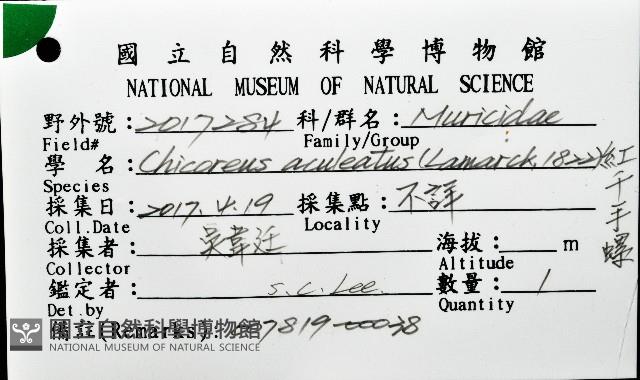 國立自然科學博物館
NATIONAL MUSEUM OF NATURAL SCIENCE
野外號：2017284 科/群名：Muricidae
Field# Family/Group
學 名：Chicoreus aculeatus (Lamarck, 1822) 紅千手螺
Species
採集日：2017.4.19 採集點：不詳
Coll.Date Locality
採集者：吳韋廷 海拔： m
Collector Altitude
鑑定者： S.C. Lee 數量： 1
Det.by Quantity
(Remarks): 7819-00038
國立自然科學博物館
NATIONAL MUSEUM OF NATURAL SCIENCE